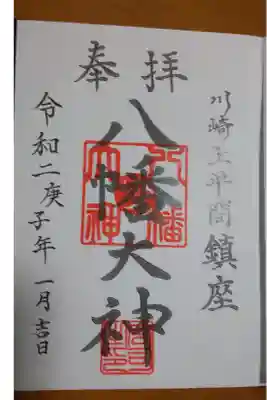 奉拝
川崎上平間鎮座
八幡大神
八幡大神
令和二庚子年一月吉日